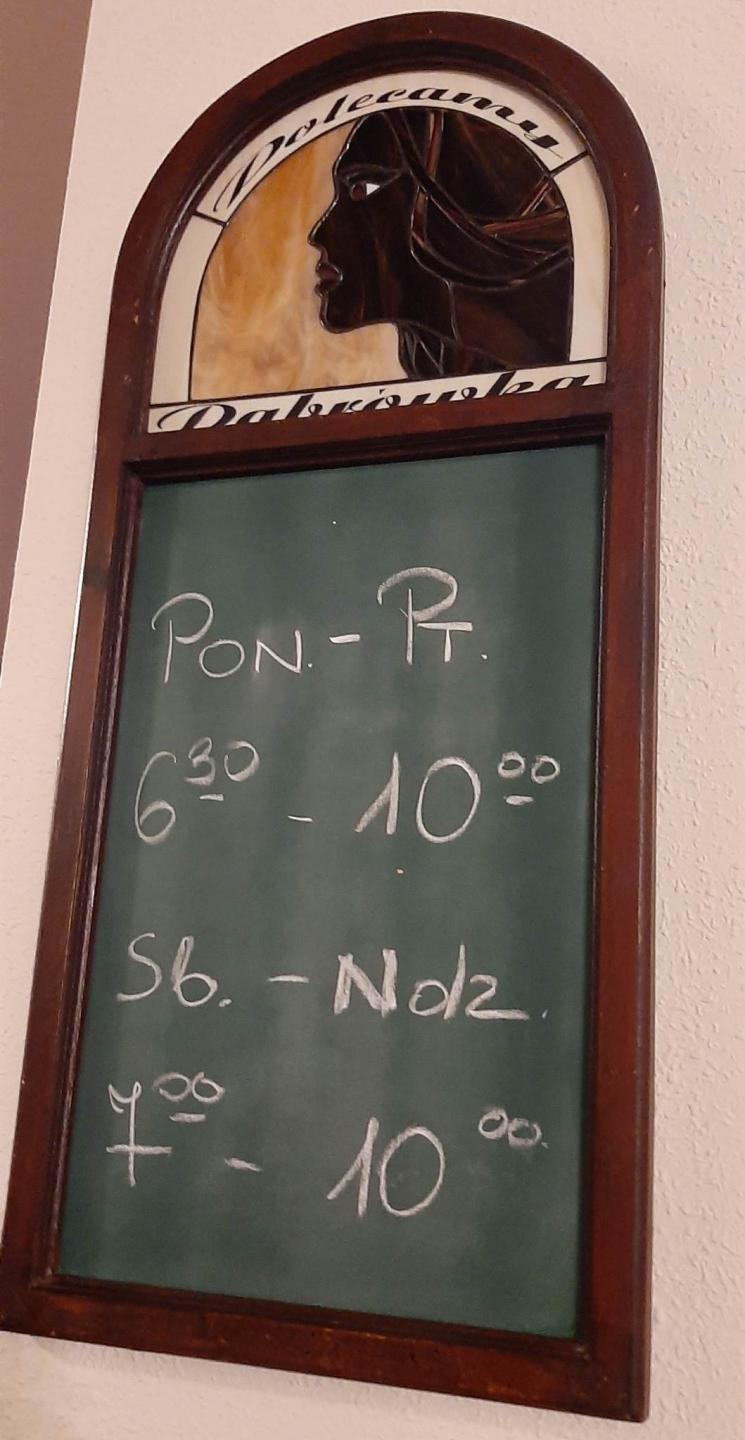 Polecamy
Dąbrówka
PON. - PT.
6 30 - 10 00
Sb. - Ndz.
7 00 - 10 00.